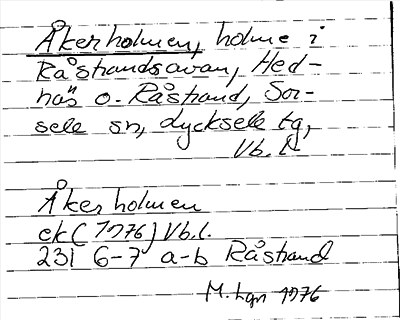 Åkerholmen, holme i
Råstrandsavan, Hed-
näs o. Råstrand, Sor-
sele sn, Lycksele tg,
Vb. l.
Åkerholmen
ek (1976) Vb.l.
23I 6-7 a-b Råstrand
M. Lgn 1976